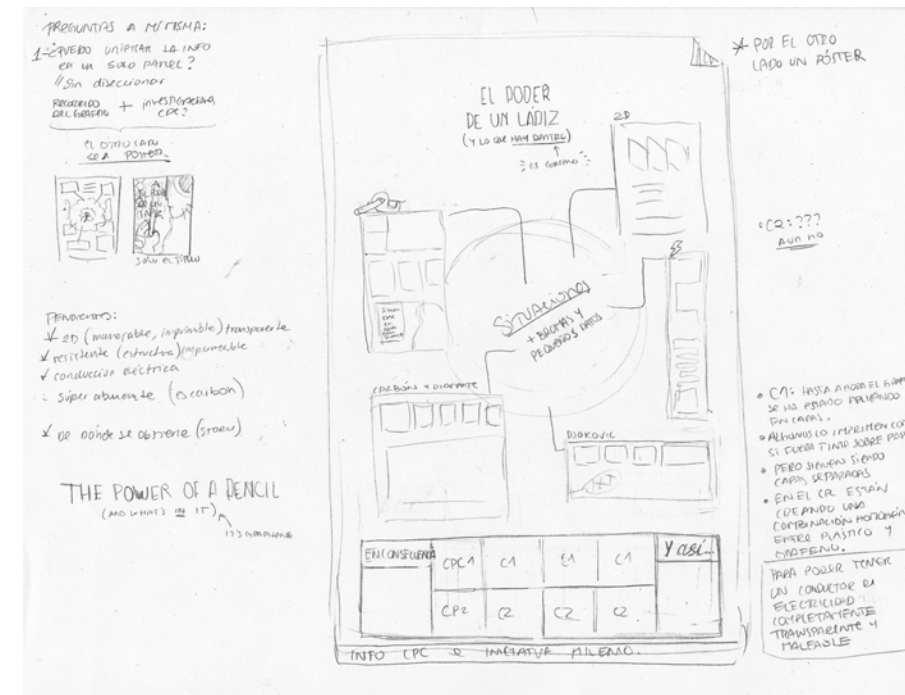 PREGUNTAS A MI MISMA:
1- ¿PUEDO UNIFICAR LA INFO
EN UN SOLO PANEL?
// Sin diseccionar
RECORRIDO DEL GRAFENO + INVESTIGACIÓN CPC?
EL OTRO LADO
SEA POSTER.
SOLO EL TITULO
PENDIENTES:
2D (manejable, imprimible) transparente
resistente (estructura) impermeable
conducción eléctrica
súper abundante (es carbon)
DE DÓNDE SE OBTIENE (STORY)
THE POWER OF A PENCIL
(AND WHAT'S IN IT)
IT'S GRAPHENE
EL PODER
DE UN LÁDIZ
(Y LO QUE HAY DENTRO)
ES GRAFENO
2D
SITUACIONES
+ BROMAS Y
PEQUEÑOS DATOS
CARBÓN Y DIAMANTE
DJOKOVIC
EN CONSECUENCIA
CPC1 C1 E1 C1
Y así...
CP2 C2 C2 C2
INFO CPC e INICIATIVA MILENIO.
* POR EL OTRO
LADO UN PÓSTER
• C2: ???
AUN NO
• C1: HASTA AHORA EL
SE HA ESTADO APLICANDO
EN CAPAS.
• ALGUNOS LO IMPRIMEN
SI FUERA TINTA SOBRE
• PERO SIGUEN SIENDO
CAPAS SEPARADAS
• EN EL ESTÁN
CREANDO UNA
COMBINACIÓN
ENTRE PLÁSTICO Y
GRAFENO.
PARA PODER TENER
UN CONDUCTOR
ELECTRICIDAD
COMPLETAMENTE
TRANSPARENTE Y
MALEABLE